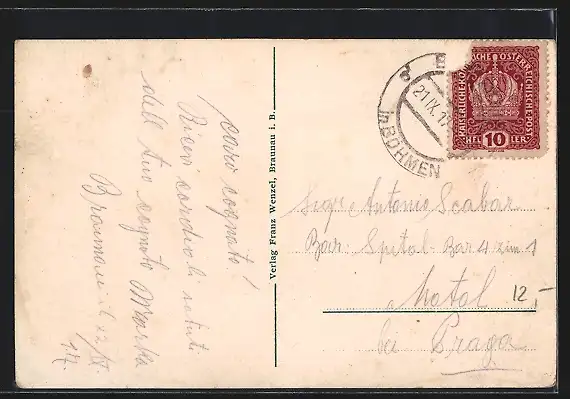 Caro cognato!
Ricevi cordiali saluti
dall tuo cognato
Braunau il 22/IX
17.
Verlag Franz Wenzel, Braunau i. B.
21 IX. 1
in BÖHMEN
KAISERLICHE KÖNIGLICHE ÖSTERREICHISCHE POST
HELLER 10
Sigr Antonio Scabar
Bar: Spital Bar 4 zim 1
a Motol
bei Praga
12,-